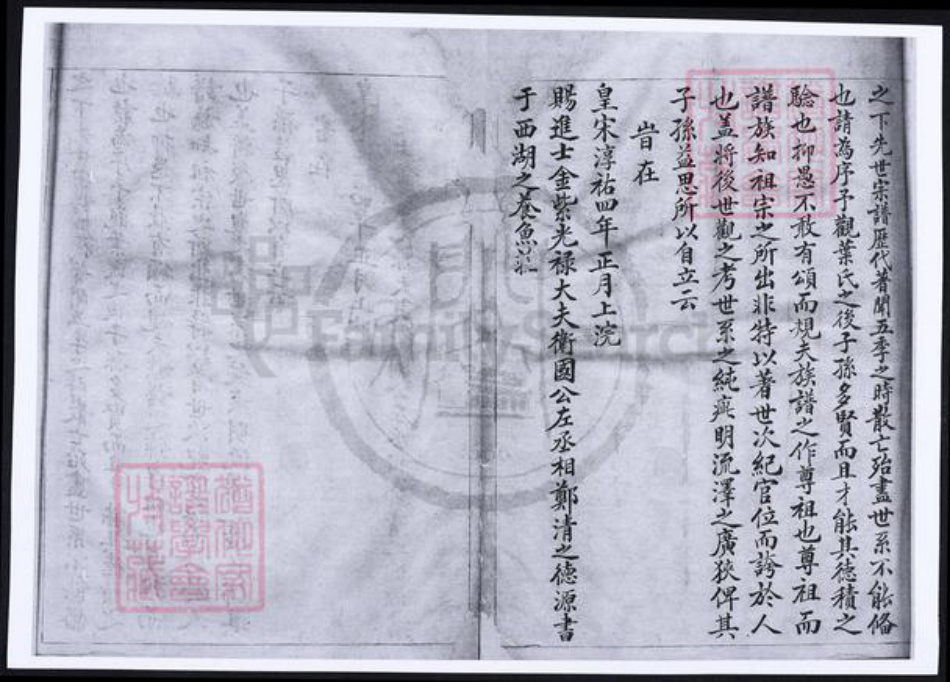 之下先世宗譜歷代著聞五季之時散亡殆盡世系不能俻
也請為序予觀葉氏之後子孫多賢而且才能其德積之
驗也抑愚不敢有頌而規夫族譜之作尊祖也尊祖而
譜族知祖宗之所出非特以著世次紀官位而誇於人
也盖將後世觀之考世系之純疵明流澤之廣狹俾其
子孫益思所以自立云
旹在
皇宋淳祐四年正月上浣
賜進士金紫光禄大夫衛國公左丞相鄭清之德源書
于西湖之養魚莊
FamilySearch